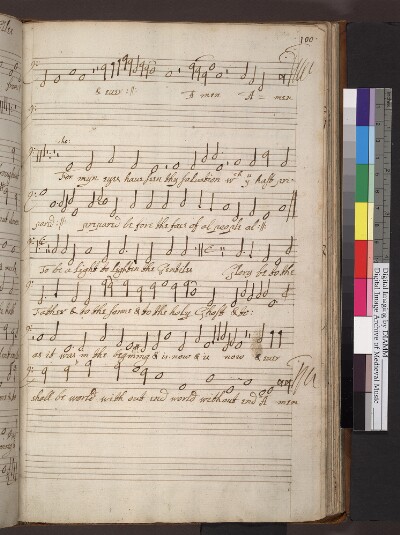 100
& ever :||: A men A = men
cho:
For myn eyes have sen thy salvation wch yu hast pre=
pard :||: prepar'd be fore the face of al people al :||:
To be a light to lighten the Gentiles Glory be to the
Father & to the sonne & to the holy Ghost & to:
as it was in the begining & is now & is now & ever
shall be world with out end world without end A men
Digital Image © by DIAMM
Digital Image Archive of Medieval Music